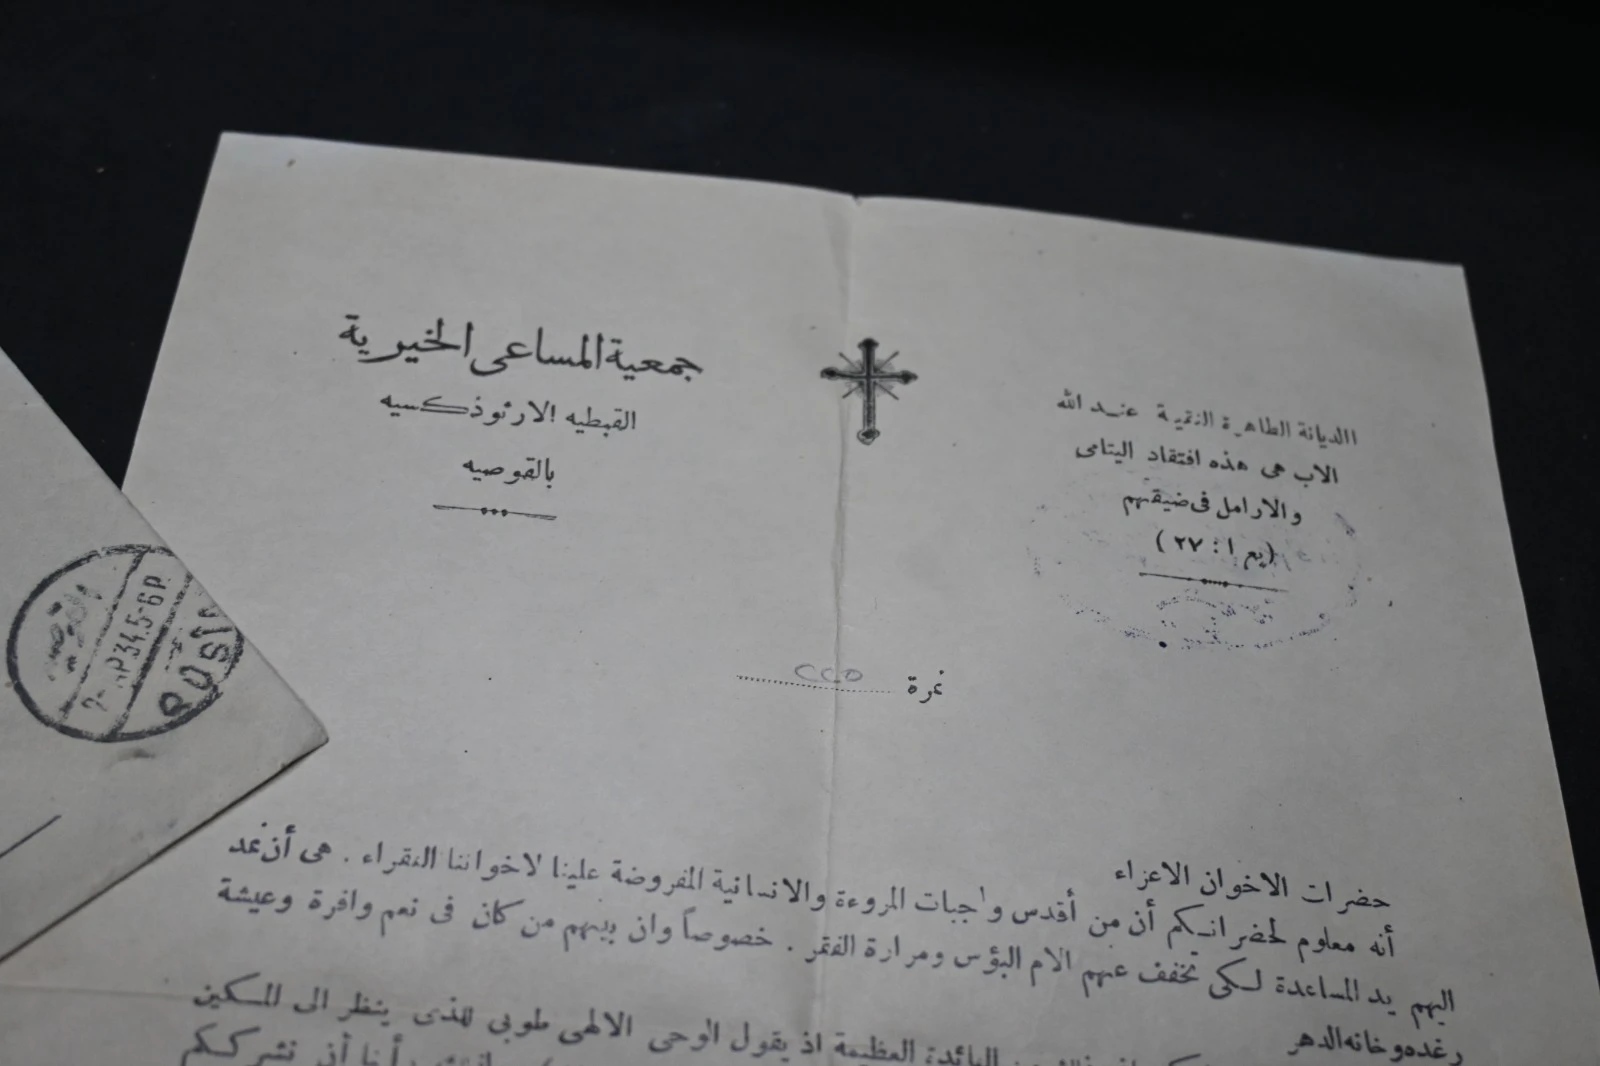 جمعية المساعى الخيرية
القبطيه الارثوذكسيه
بالقوصيه
الديانة الطاهرة النقية عند الله
الاب هى هذه افتقاد اليتامى
والارامل فى ضيقتهم
(يع ١ : ٢٧)
نمرة
حضرات الاخوان الاعزاء
أنه معلوم لحضراتكم أن من أقدس واجبات المروءة والانسانية المفروضة علينا لاخواننا الفقراء . هى أن نمد
اليهم يد المساعدة لكى تخفف عنهم الام البؤس ومرارة الفقر . خصوصاً وان بينهم من كان فى نعم وافرة وعيشة
رغده وخانه الدهر
العظيمة اذ يقول الوحى الالهى طوبى للذى ينظر الى المسكين
34.5-6P